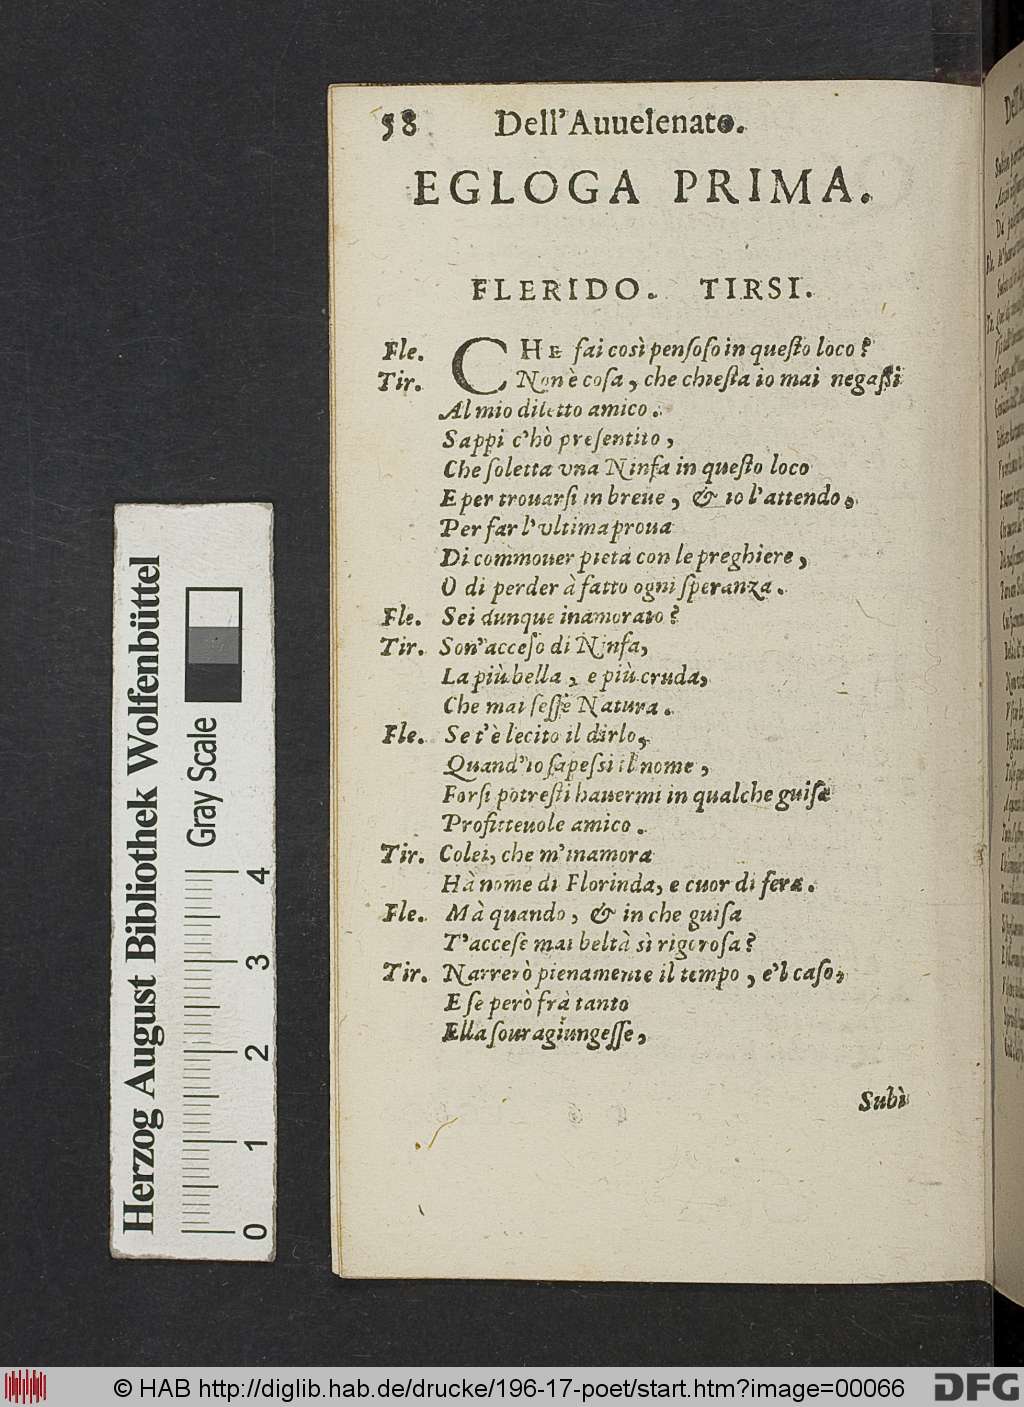 58 Dell'Auuelenato.
EGLOGA PRIMA.
FLERIDO. TIRSI.
Fle. CHE fai così penſoſo in queſto loco?
Tir. Non è coſa, che chieſta io mai negaſſi
Al mio diletto amico.
Sappi c'hò preſentito,
Che ſoletta vna Ninfa in queſto loco
E per trouarſi in breue, & io l'attendo,
Per far l'vltima proua
Di commouer pietà con le preghiere,
O di perder à fatto ogni ſperanza.
Fle. Sei dunque inamorato?
Tir. Son'acceſo di Ninfa,
La più bella, e più cruda,
Che mai feſſe Natura.
Fle. Se t'è lecito il dirlo,
Quand'io ſapeſsi il nome,
Forſi potreſti hauermi in qualche guiſa
Profitteuole amico.
Tir. Colei, che m'inamora
Hà nome di Florinda, e cuor di fera.
Fle. Mà quando, & in che guiſa
T'acceſe mai beltà sì rigoroſa?
Tir. Narrerò pienamente il tempo, e'l caſo,
E ſe però frà tanto
Ella ſouragiungeſſe,
Subì
Herzog August Bibliothek Wolfenbüttel
Gray Scale
0 1 2 3 4
© HAB http://diglib.hab.de/drucke/196-17-poet/start.htm?image=00066
DFG